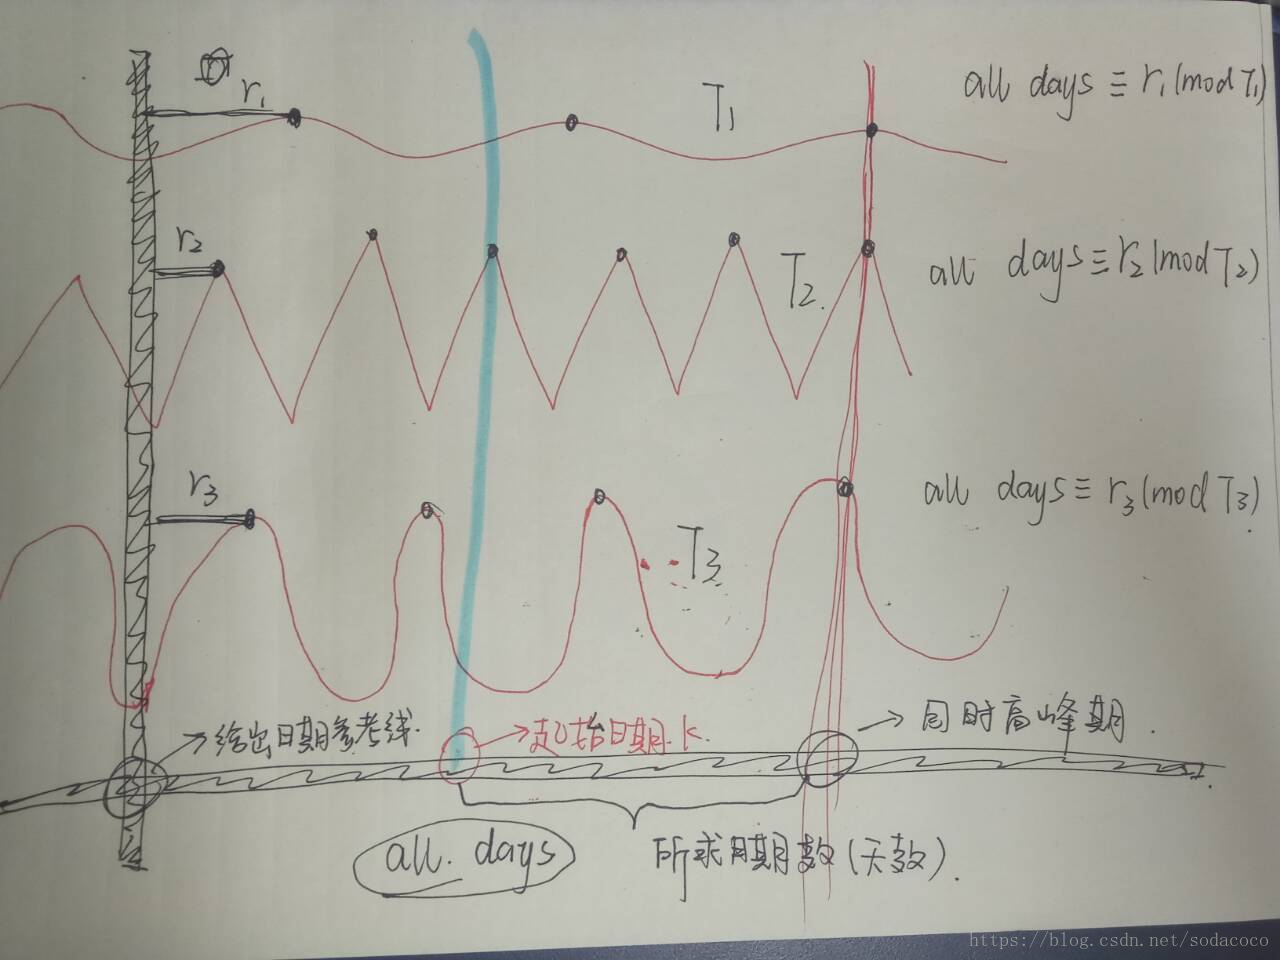 r₁
T₁
all days ≡ r₁(mod T₁)
r₂
T₂.
all days ≡ r₂(mod T₂)
r₃
T₃
all days ≡ r₃(mod T₃)
给出日期参考线.
起始日期k.
同时高峰期.
all. days
所求日期数(天数).
https://blog.csdn.net/sodacoco